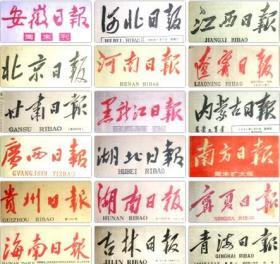 安徽日報
周末刊
河北日報
HEBEI RIBAO
江西日報
JIANGXI RIBAO
北京日報
河南日報
HENAN RIBAO
遼寧日報
LIAONING RIBAO
甘肅日報
GANSU RIBAO
黑龍江日報
内蒙古日報
廣西日報
GVANGJSIH YIZBAU
湖北日報
HUBEI RIBAO
南方日報
周末扩大版
貴州日報
GUIZHOU RIBAO
湖南日報
HUNAN RIBAO
寧夏日報
NINGXIA RIBAO
海南日报
HAINAN RIBAO
吉林日報
JILIN RIBAO
青海日報
QINGHAI RIBAO